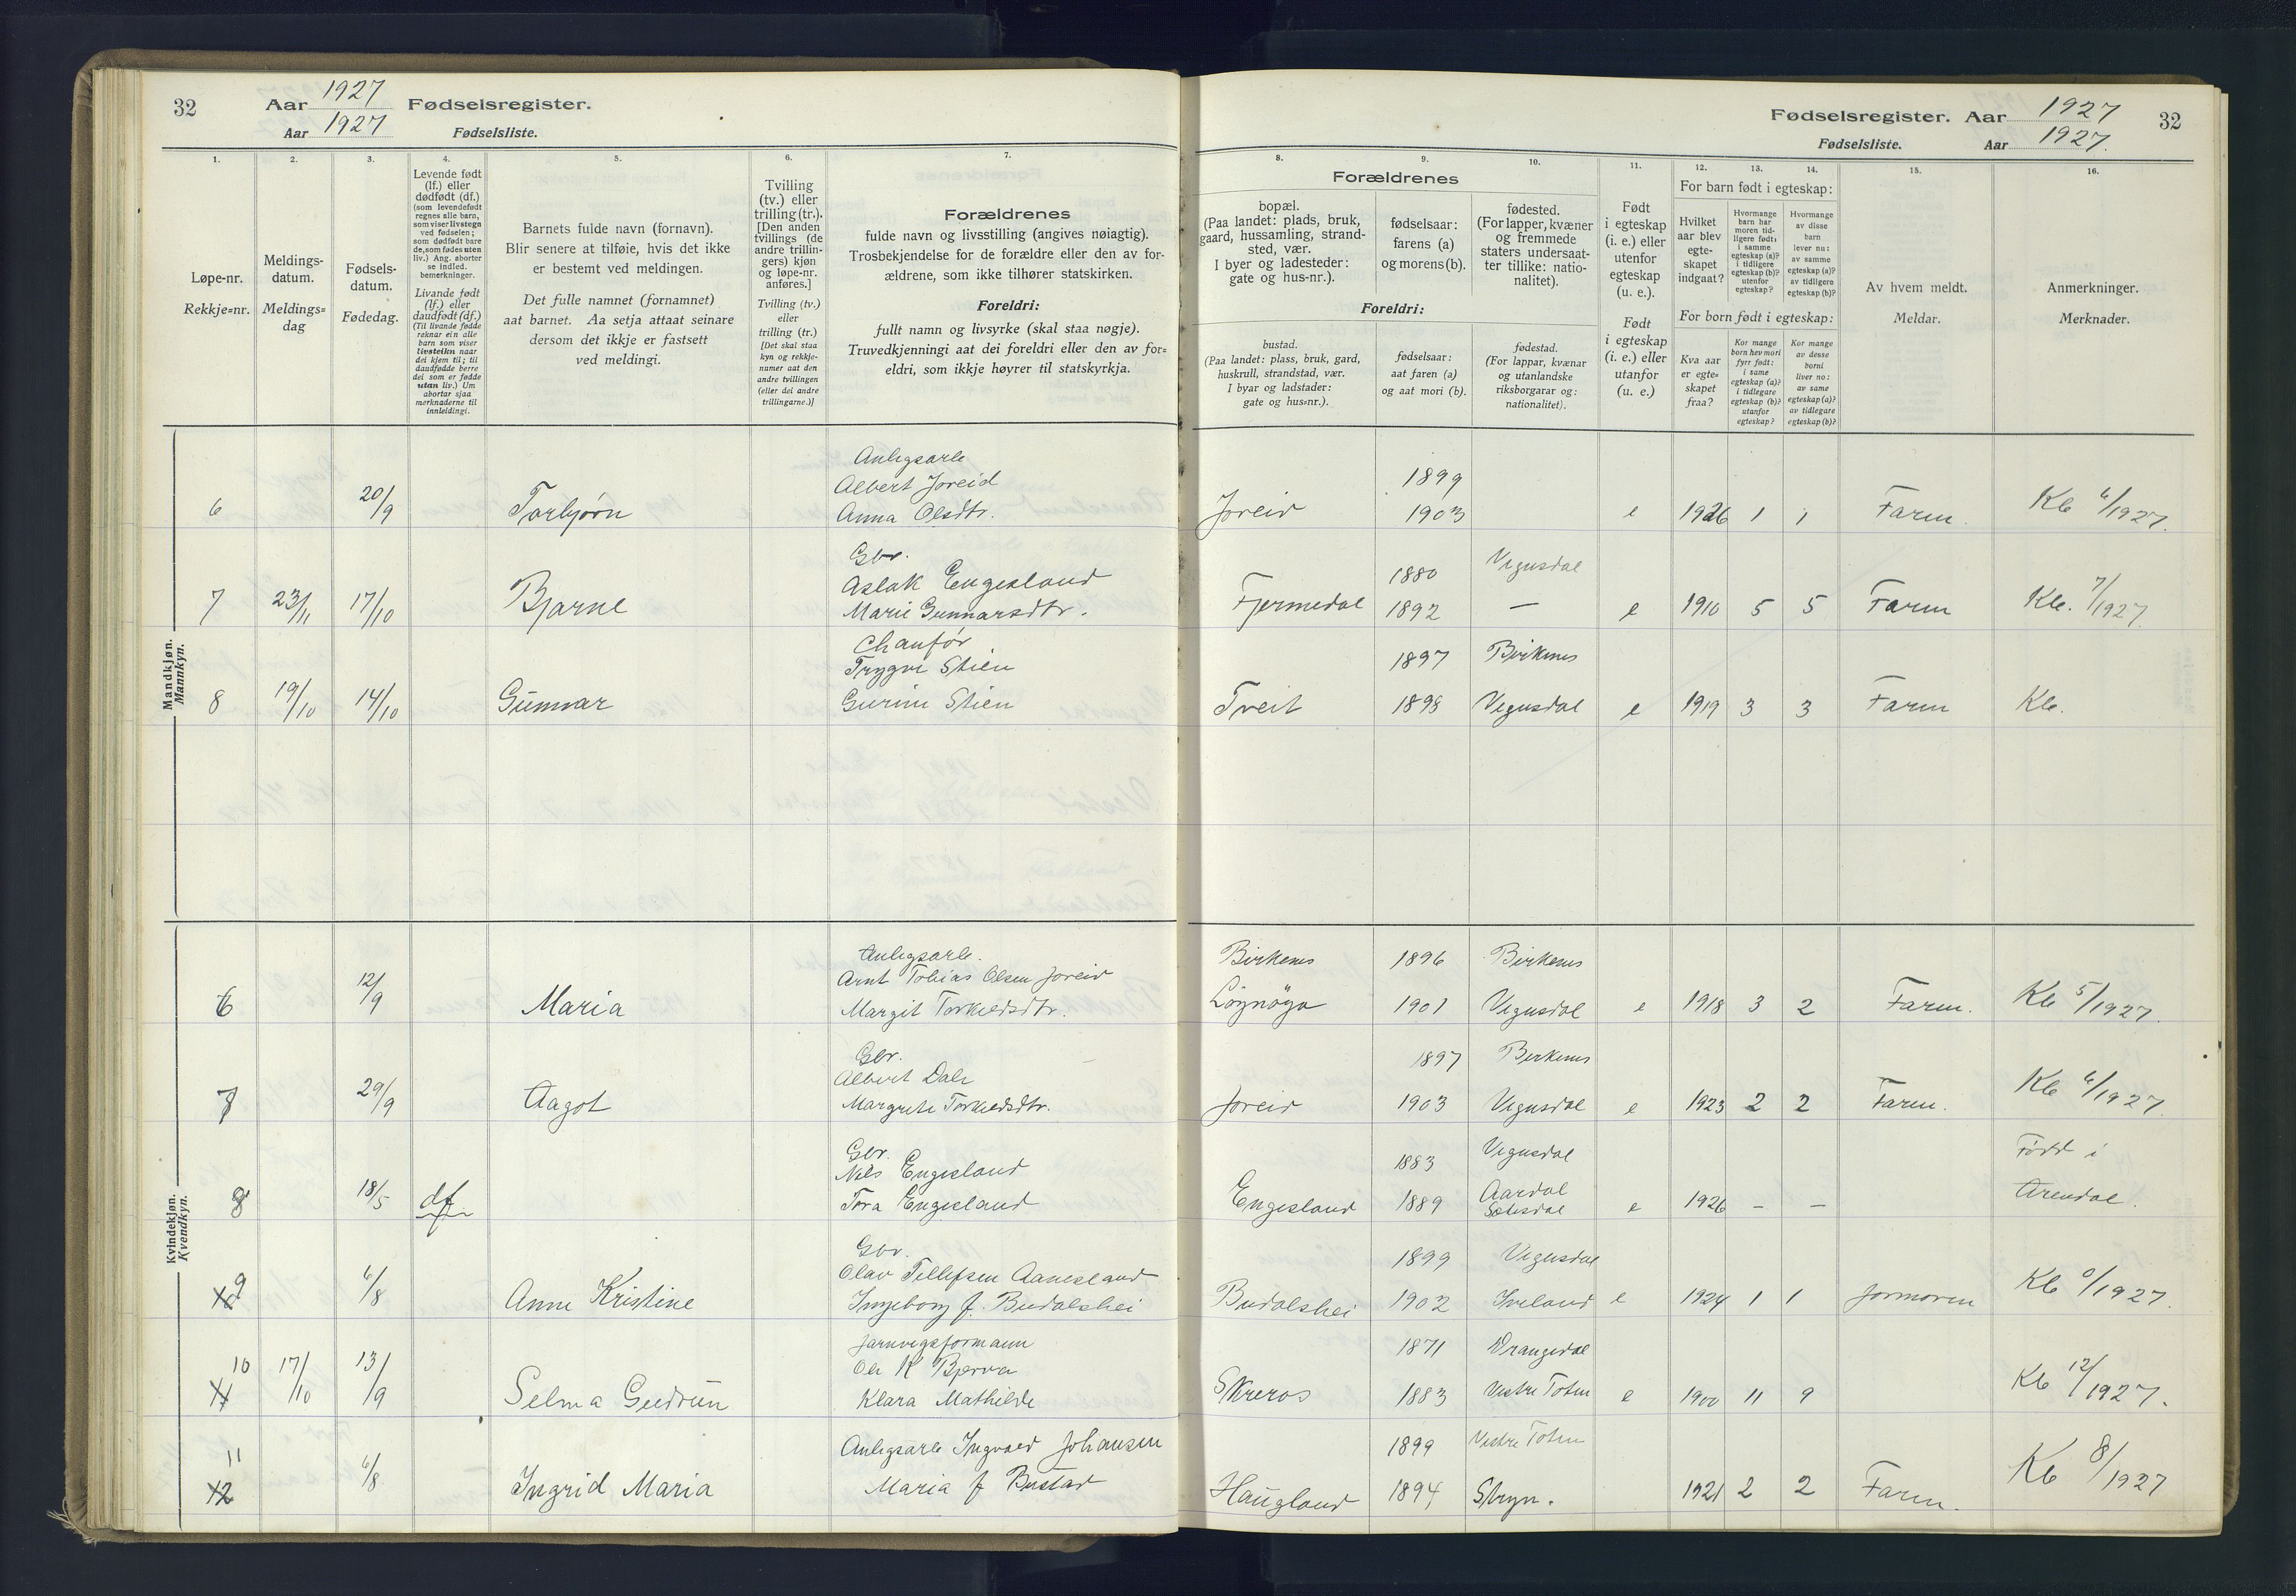 32 Aar 1927 Fødselsregister.
Aar 1927 Fødselsliste.
1. 2. 3. 4. 5. 6. 7.
Løpe-nr.
Rekkje=nr.
Meldings-
datum.
Meldings=
dag
Fødsels-
datum.
Fødedag.
Levende født
(lf.) eller
dødfødt (df.)
(som levendefødt
regnes alle barn,
som viser livstegn
ved fødselen;
som dødfødt bare
de, som fødes uten
liv.) Ang. aborter
se indled.
bemerkninger.
Livande født
(lf.) eller
daudfødt (df.)
(Til livande fødde
reknar ein alle
barn som viser
livsteikn naar
dei kjem til; til
daudfødde berre
dei som er fødde
utan liv.) Um
abortar sjaa
merknaderne til
innleidingi.
Barnets fulde navn (fornavn).
Blir senere at tilføie, hvis det ikke
er bestemt ved meldingen.
Det fulle namnet (fornamnet)
aat barnet. Aa setja attaat seinare
dersom det ikkje er fastsett
ved meldingi.
Tvilling
(tv.) eller
trilling (tr.).
[Den anden
tvillings (de
andre trillin-
gers) kjøn
og løpe-nr.
anføres.]
Tvilling (tv.)
eller
trilling (tr.)
[Det skal staa
kyn og rekkje-
numer aat den
andre tvillingen
(eller dei andre
trillingarne.)]
Forældrenes
fulde navn og livsstilling (angives nøiagtig).
Trosbekjendelse for de forældre eller den av for-
ældrene, som ikke tilhører statskirken.
Foreldri:
fullt namn og livsyrke (skal staa nøgje).
Truvedkjenningi aat dei foreldri eller den av for=
eldri, som ikkje høyrer til statskyrkja.
Mandkjøn.
Mannkyn.
Anlegsarb
Albert Joreid
6 20/9 Torbjørn Anna Olsdtr.
Gbr.
Aslak Engesland
7 23/11 17/10 Bjarne Marie Gunnarsdtr.
Chauffør
Trygve Stien
8 19/10 14/10 Gunnar Gurine Stien
Kvindekjøn.
Kvendkyn.
Anlegsarb.
Arnt Tobias Olsen Joreid
6 12/9 Maria Margit Torkildsdtr.
Gbr.
Albert Dale
7 29/9 Aagot Margrete Torkildsdtr.
Gbr.
Nils Engesland
8 18/5 df Tora Engesland
Gbr.
Olav Tellefsen Aanesland
9 6/8 Anne Kristine Ingeborg f. Budalshei
Jarnvegsformann
Ole K Bjerva
10 17/10 13/9 Selma Gudrun Klara Mathilde
11 Anlegsarb Ingvald Johansen
12 6/8 Ingrid Maria Maria f Bustad
Fødselsregister. Aar 1927 32
Fødselsliste. Aar 1927.
8. 9. 10. 11. 12. 13. 14. 15. 16.
Forældrenes
bopæl.
(Paa landet: plads, bruk,
gaard, hussamling, strand-
sted, vær.
I byer og ladesteder:
gate og hus-nr.).
fødselsaar:
farens (a)
og morens (b).
fødested.
(For lapper, kvæner
og fremmede
staters undersaat-
ter tillike: natio-
nalitet).
Foreldri:
bustad.
(Paa landet: plass, bruk, gard,
huskrull, strandstad, vær.
I byar og ladstader:
gate og hus=nr.).
fødselsaar:
aat faren (a)
og aat mori (b).
fødestad.
(For lappar, kvænar
og utanlandske
riksborgarar og:
nationalitet).
Født
i egteskap
(i. e.) eller
utenfor
egteskap
(u. e.).
Født
i egteskap
(i. e.) eller
utanfor
(u. e.)
For barn født i egteskap:
Hvilket
aar blev
egte-
skapet
indgaat?
Hvormange
barn har
moren tid-
ligere født:
i samme
egteskap (a)?
i tidligere
egteskap (b)?
utenfor
egteskap?
Hvormange
av disse
barn
lever nu:
av samme
egteskap (a)?
av tidligere
egteskap (b)?
For born født i egteskap:
Kva aar
er egte=
skapet
fraa?
Kor mange
born hev mori
fyrr født:
i same
egteskap (a)?
i tidlegare
egteskap (b)?
utanfor
egteskap?
Kor mange
av desse
borni
liver no:
av same
egteskap (a)?
av tidlegare
egteskap (b)?
Av hvem meldt.
Meldar.
Anmerkninger.
Merknader.
1899
Joreid 1903 e 1926 1 1 Faren. Kb 6/1927.
1880 Vegusdal
Fjermedal 1892 — e 1910 5 5 Faren Kb. 7/1927.
1897 Birkenes
Tveit 1898 Vegusdal e 1919 3 3 Faren Kb.
Birkenes 1896 Birkenes
Lognøga 1901 Vegusdal e 1918 3 2 Faren. Kb 5/1927.
1897 Birkenes
Joreid 1903 Vegusdal e 1923 2 2 Faren. Kb 6/1927.
1883 Vegusdal Født i
Engesland 1889 Aardal
Setesdal e 1926 — — Arendal.
1899 Vegusdal
Budalshei 1902 Iveland e 1924 1 1 Jormoren Kb 9/1927.
1871 Drangedal
Skreros 1883 Vestre Toten e 1900 11 9 Kb 12/1927.
1899 Vestre Toten
Haugland 1894 Stryn. 1921 2 2 Faren. Kb 8/1927